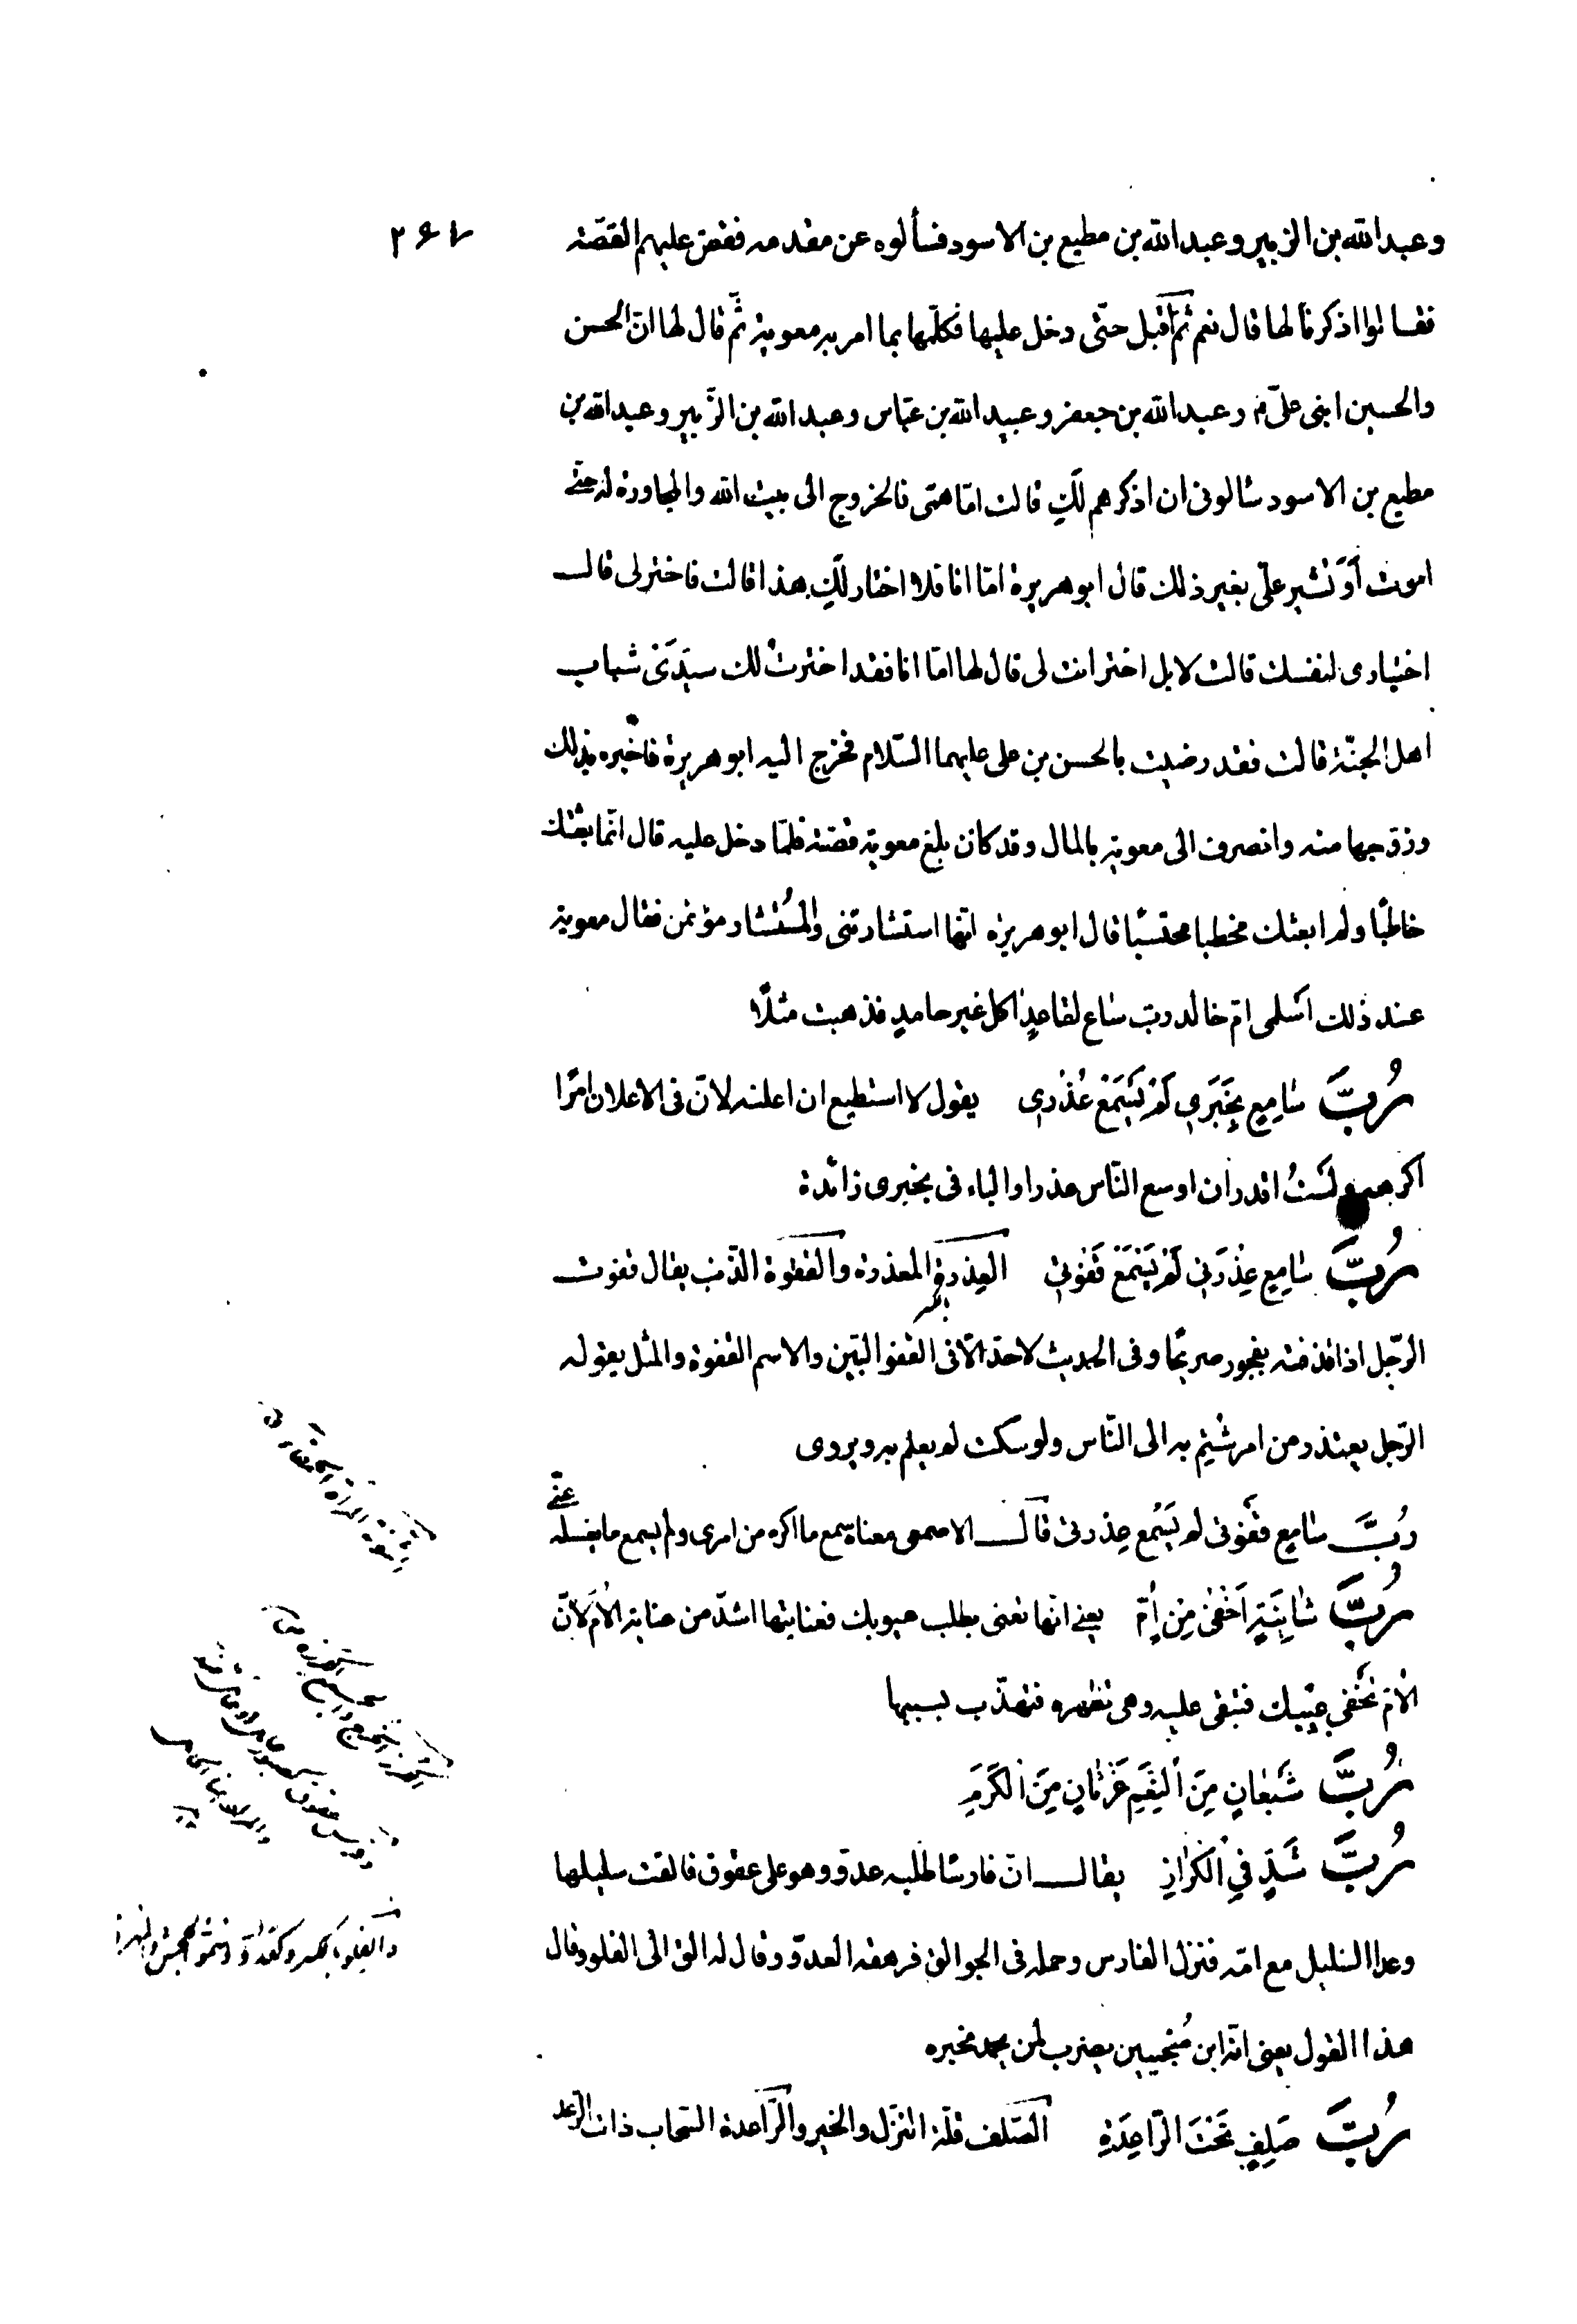 وعبدالله بن الزبير وعبدالله بن مطيع بن الاسود فسألوه عن مقدمه فقصّ عليهم القصّة
۲۶۷
فقالوا اذكرنا لها قال نعم ثمّ اقبل حتّى دخل عليها فكلّمها بما امر به معوية ثمّ قال لها انّ الحسن
والحسين ابنى علىّ م وعبدالله بن جعفر وعبيدالله بن عبّاس وعبدالله بن الزّبير وعبدالله بن
مطيع بن الاسود سالونى ان اذكرهم لكِ قالت امّا همّى فالخروج الى بيت الله والمجاورة له حتّى
اموت أوَ تشير علىّ بغير ذلك قال ابوهريرة امّا انا فلا اختار لكِ هذا قالت فاختر لى قال
اختيارى لنفسك قالت لا بل اختر انت لى قال لها امّا انا فقد اخترت لك سيّدَىْ شباب
اهل الجنّة قالت فقد رضيت بالحسن بن على عليهما السّلام فخرج اليه ابوهريرة فاخبره بذلك
وزوّجها منه وانصرف الى معوية بالمال وقد كان بلغ معوية قصّته فلمّا دخل عليه قال انّما بعثتك
خاطبًا ولم ابعثك مخطبا محتسبًا قال ابوهريرة انّها استشارتنى والمُستشار مؤتمن فقال معوية
عند ذلك اسلمى امّ خالد ربّ ساع لقاعدٍ اكل غير حامدٍ فذهبت مثلًا
رُبَّ سٰامِعٍ بِخَبَرِي لَمْ يَسْمَعْ عُذْرِي يقول لا استطيع ان اعلنه لانّ فى الاعلان امرًا
اكرهه ولَستُ اقدر ان اوسع النّاس عذرا والباء فى بخبرى زائدة
رُبَّ سٰامِعِ عِذْرَتِي لَمْ يَسْمَعْ قَفْوَتِي العِذرة المعذرة والقفوة الذّنب يقال قفوت
الرّجل اذا قذفته بفجور صريحًا وفى الحديث لا حدّ الّا فى القفو البيّن والاسم القفوة والمثل يقوله
الرّجل يعتذر من امر شتم به الى النّاس ولو سكت لم يعلم به ويروى
رُبَّ سٰامِعٍ قَفْوَتى لم يَسْمع عِذرتى قال الاصمعى معناه سمع ما اكره من امرى ولم يسمع ما يغسله عنّى
رُبَّ شٰانِئَةٍ اَحْفٰى مِنْ اُمّ يعنى انّها تعنى بطلب عيوبك فعنايتها اشدّ من عناية الاُمّ لانّ
الاُمّ تخفى عيبك فتبقى عليه وهى تظهره فتهذّب بسببها
رُبَّ شَبْعٰانٍ مِنَ النِّعَمِ غَرْثٰانٍ مِنَ الْكَرَمِ
رُبَّ شَدٍّ فِي الْكُرْزِ يقال انّ فارسًا طلبه عدوّ وهو على عقوق فالقت سليلها
وعدا السّليل مع امّه فنزل الفارس وحمله فى الجوالق فرهقه العدوّ وقال له الق الى الفلو وقال
هذا القول يعنى انّه ابن مُنجبين يضرب لمن يحمد مخبره
رُبَّ صَلِفٍ تَحْتَ الرّٰاعِدَةِ الصّلف قلّة النّزل والخير والرّاعدة السّحاب ذات الرّعد